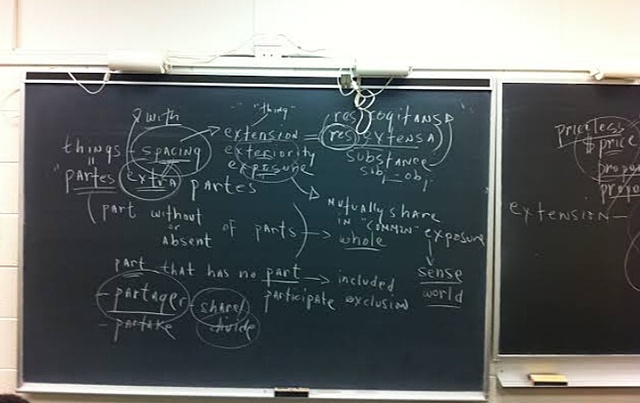 with
"thing"
res cogitans
things - spacing extension = res extensa
"partes extra partes
exteriority
exposure
substance
subj - obj
part without of parts
or
absent
mutually share
in "common" exposure
whole
part that has no part → included
participate exclusion
sense
world
- partager - share
divide
- partake
priceless
$ price
extension -